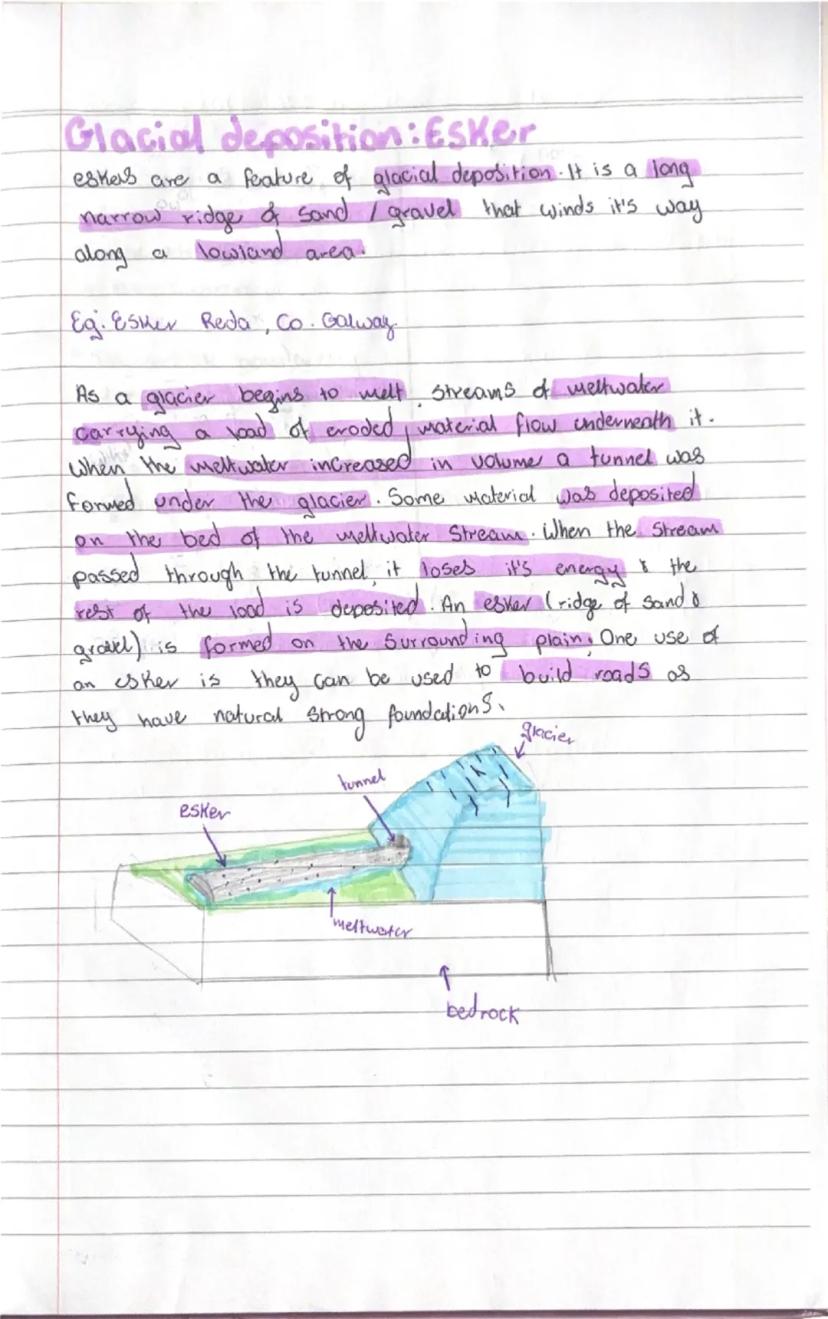 Glacial deposition: Esker
eskers are a feature of glacial deposition. It is a long
narrow ridge of sand / gravel that winds it's way
along a lowland area.
Eg: Esker Reda, Co. Galway
As a glacier begins to melt, streams of meltwater
carrying a load of eroded material flow underneath it.
When the meltwater increased in volume a tunnel was
formed under the glacier. Some material was deposited
on the bed of the meltwater stream. When the stream
passed through the tunnel, it loses it's energy & the
rest of the load is deposited. An esker (ridge of sand &
gravel) is formed on the surrounding plain. One use of
an esker is they can be used to build roads as
they have natural strong foundations.
glacier
tunnel
esker
meltwater
bedrock